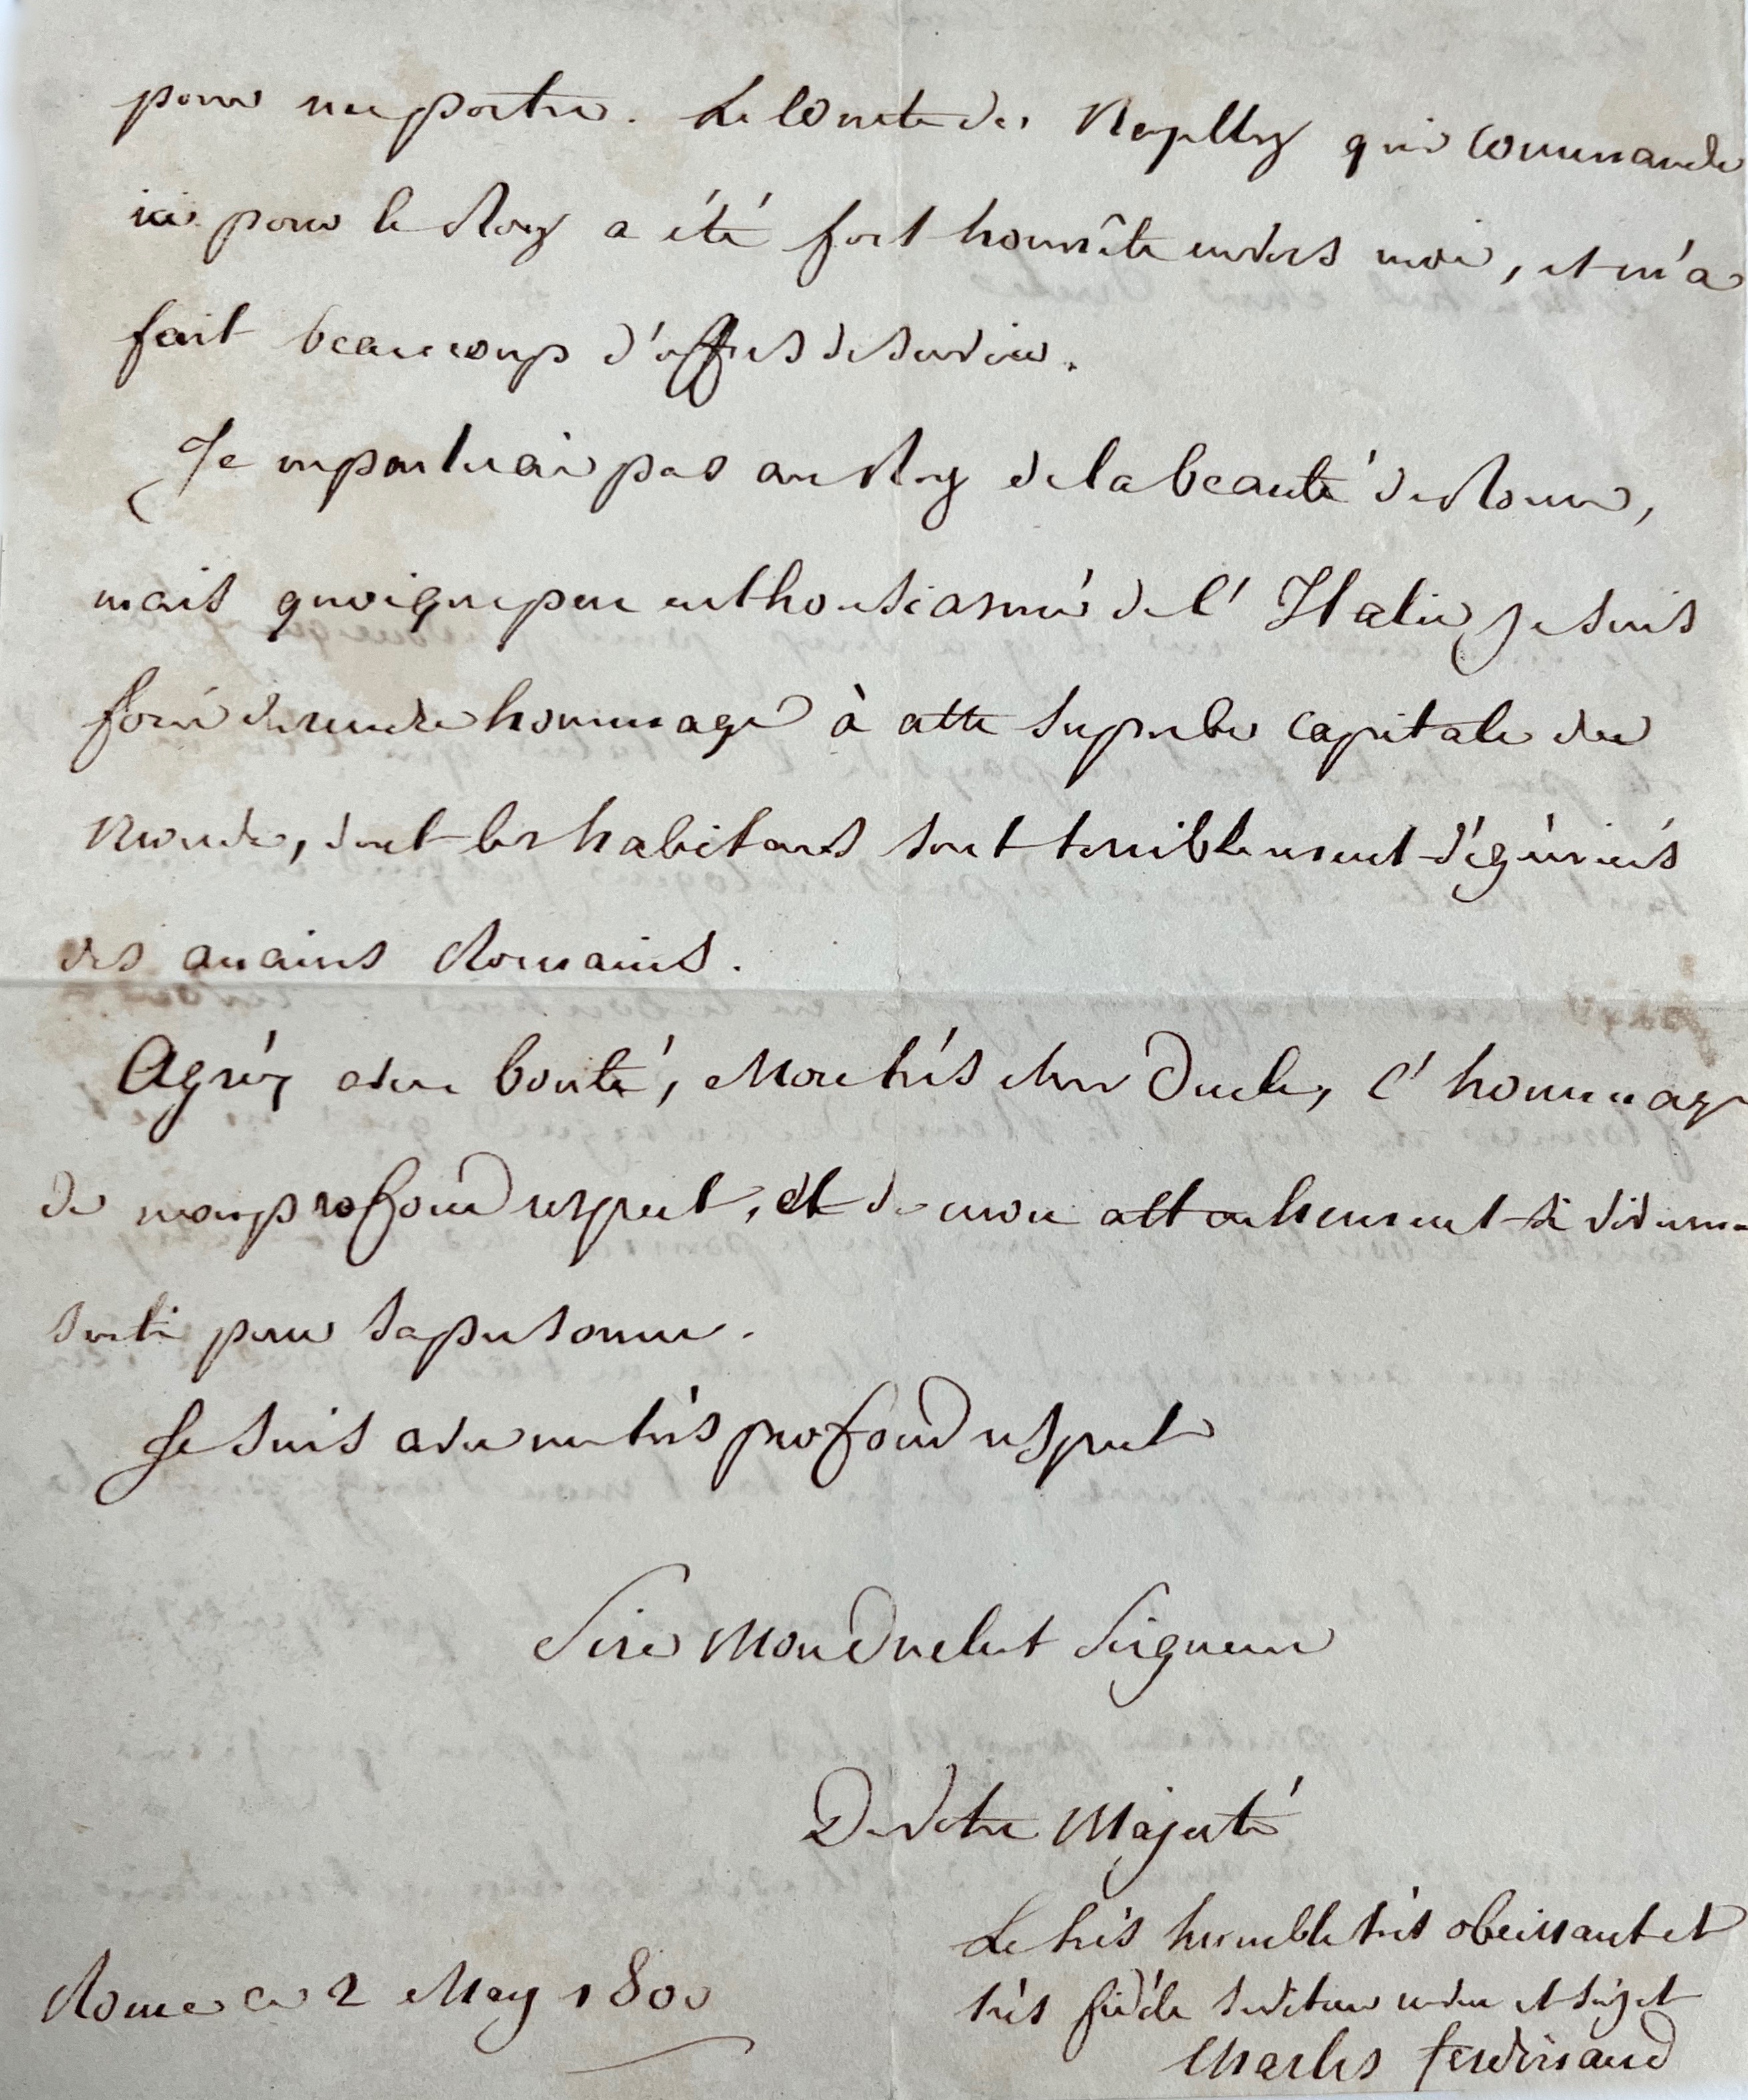 pour me porter. Le Comte de Naselly qui commande
ici pour le Roy a été fort honnête envers moi, et m'a
fait beaucoup d'offres de service.
Je ne parlerai pas au Roy de la beauté de Rome,
mais quoique peu enthousiasmé de l'Italie je suis
forcé de rendre hommage à cette superbe capitale du
Monde, dont les habitans sont terriblement dégénérés
des anciens Romains.
Agréez avec bonté, Mon très cher Oncle, l'hommage
de mon profond respect, et de mon attachement si vivement
senti pour sa personne.
Je suis avec un très profond respect
Sire Mon Oncle et Seigneur
De Votre Majesté
Le très humble très obeissant et
très fidéle serviteur neveu et sujet
Charles Ferdinand
Rome ce 2 May 1800